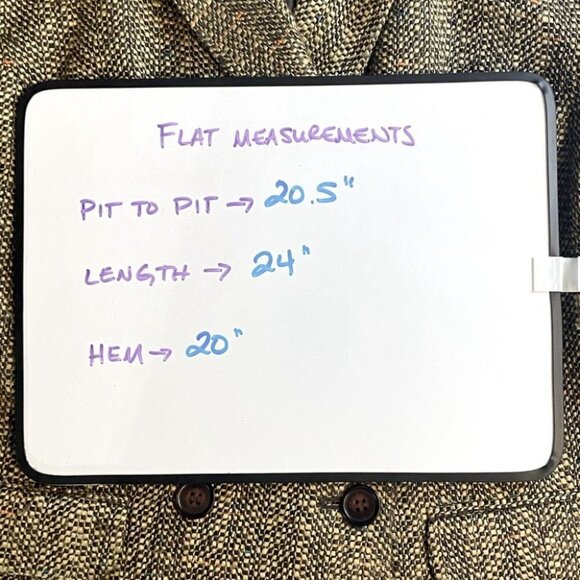 FLAT MEASUREMENTS
PIT TO PIT → 20.5"
LENGTH → 24"
HEM → 20"